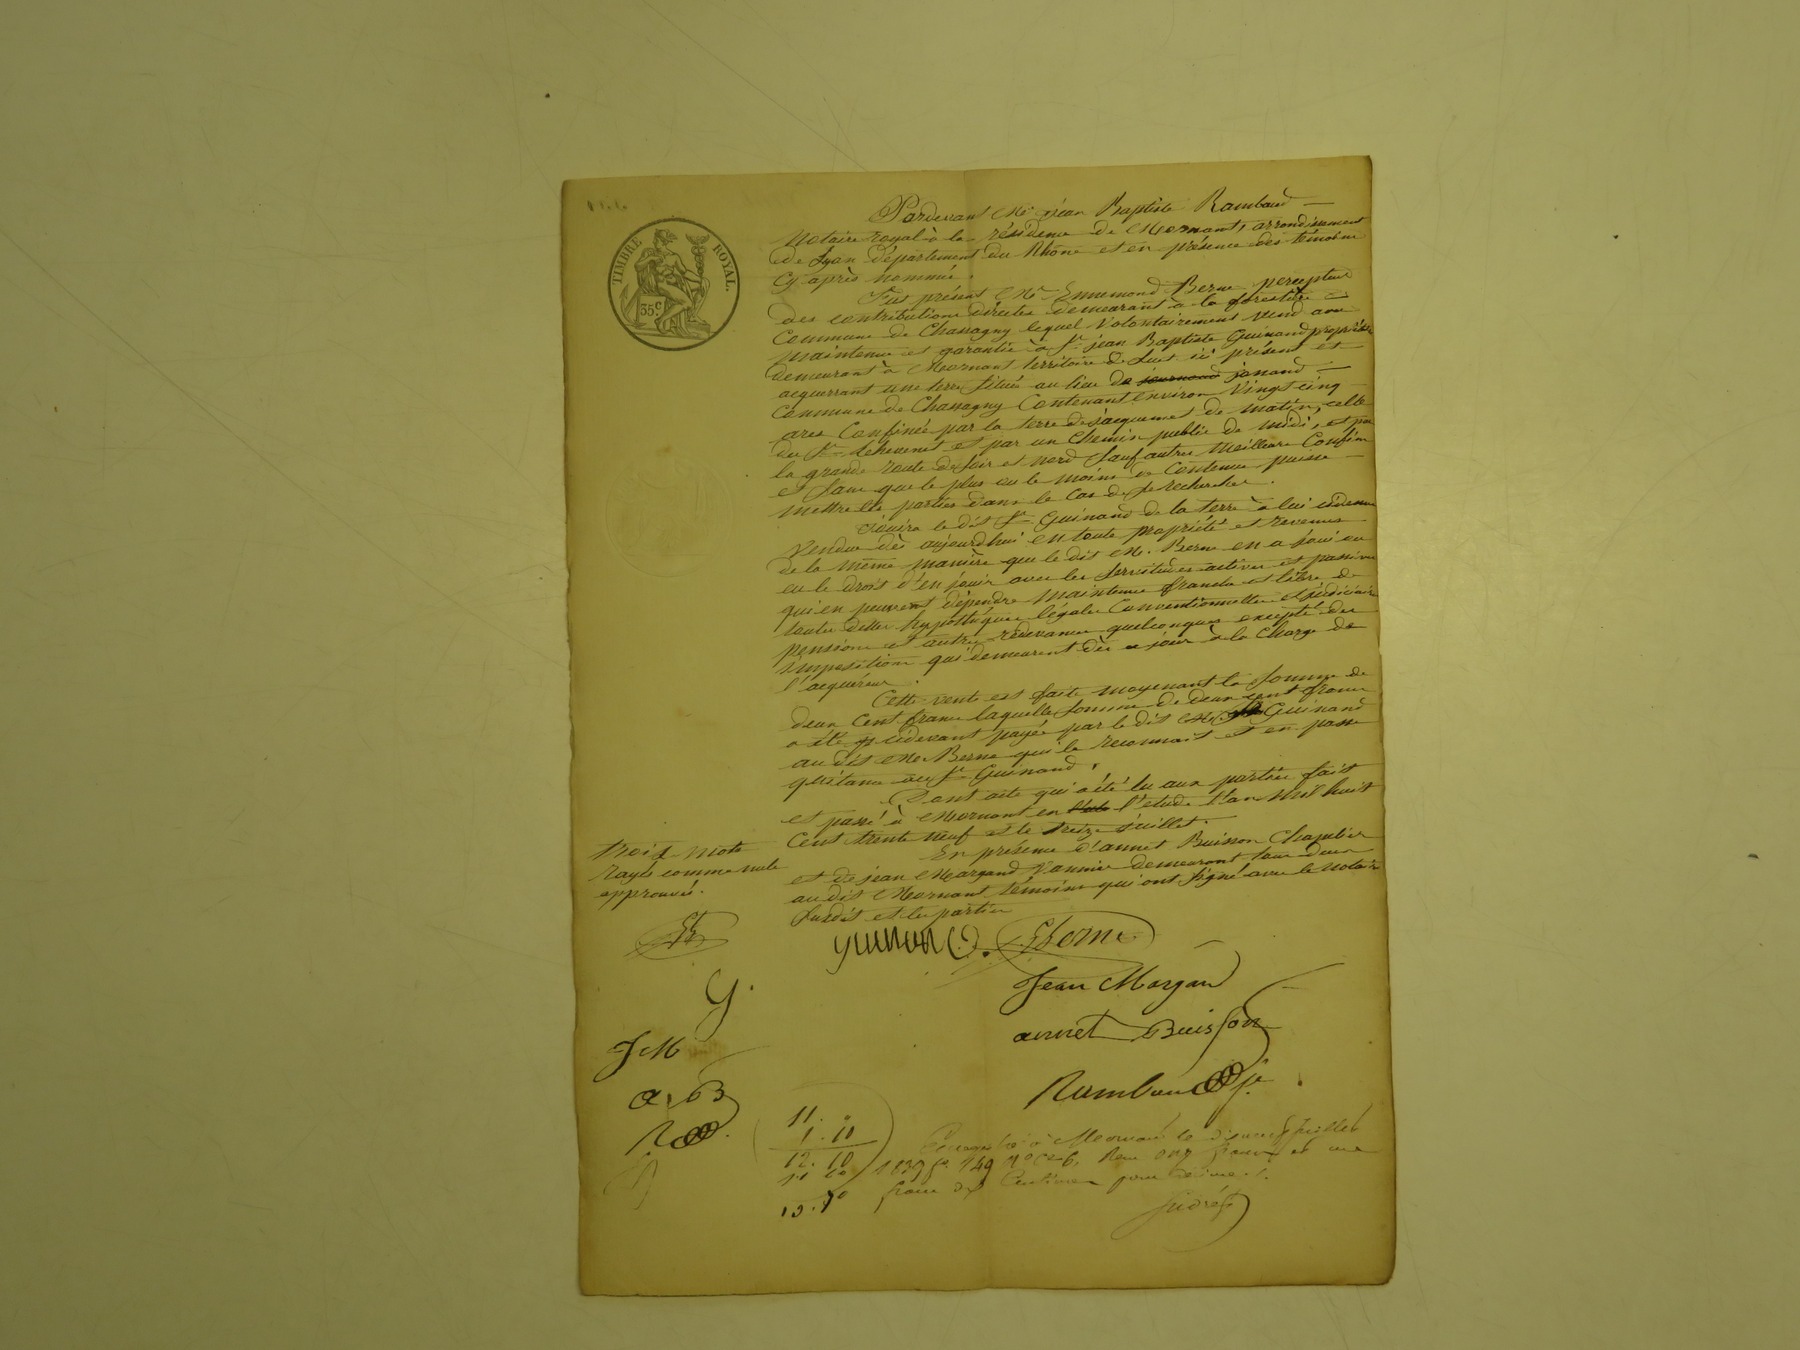 TIMBRE ROYAL.
35c
Pardevant Me jean Baptiste Rambaud
Notaire royal à la résidence de Mornant, arrondissement
de Lyon département du Rhône et en présence des témoins
Cy après nommés.
Fut présent Mr Ennemond Berne percepteur
des contributions directes demeurant à la forestière
Commune de Chassagny lequel Volontairement vend avec
maintenue et garantie à Sr jean Baptiste Guinand propriétre
demeurant à Mornant territoire de ici présent et
acquerrant une terre située au lieu de journand jonand
Commune de Chassagny Contenant environ Vingt cinq
ares Confinée par la terre de jacquemet de matin, celle
du Sr et par un chemin public de midi, et par
la grande route de soir et nord Sauf autres meilleurs Confins
et sans que le plus ou le moins de Contenue puisse
mettre les parties dans le Cas de se rechercher.
Jouira le dit Sr Guinand de la terre à lui cidessus
Vendue dès aujourdhui en toute propriété et revenus
de la même manière que le dit M. Berne en a joui ou
eu le droit d'en jouir avec les servitudes actives et passives
qui en peuvent dépendre maintenue franche et libre de
toutes dettes hypothèques légales Conventionnelles et judiciaires
pensions et autres redevances quelconques excepté des
impositions qui demeurent dès ce jour à la Charge de
l'acquéreur.
Cette vente est faite moyenant la Somme de
deux Cent francs laquelle Somme de deux cent francs
a été cidevant payée par le dit Guinand
au dit Mr Berne qui le reconnait et en passe
quitance au Sr Guinand.
Dont acte qui a été lu aux parties fait
et passé à Mornant en l'etude l'an Mil huit
Cent trente neuf et le treize juillet.
En présence d'annet Buisson Chapelier
et de jean Margand Vannier demeurant tous deux
au dit Mornant témoins qui ont signé avec le notaire
Susdit et les parties
trois mots
rayés comme nuls
approuvés.
EB
guinand. EBerne
Jean Morgan
G.
annet Buisson
JM
Rambaud
a. B
R
11.
1.10
12.10
Enregistré à Mornant le juillet
1839 fo 149 Ro Ce 6. Reçu onze francs et un
franc dix Centimes pour décime.